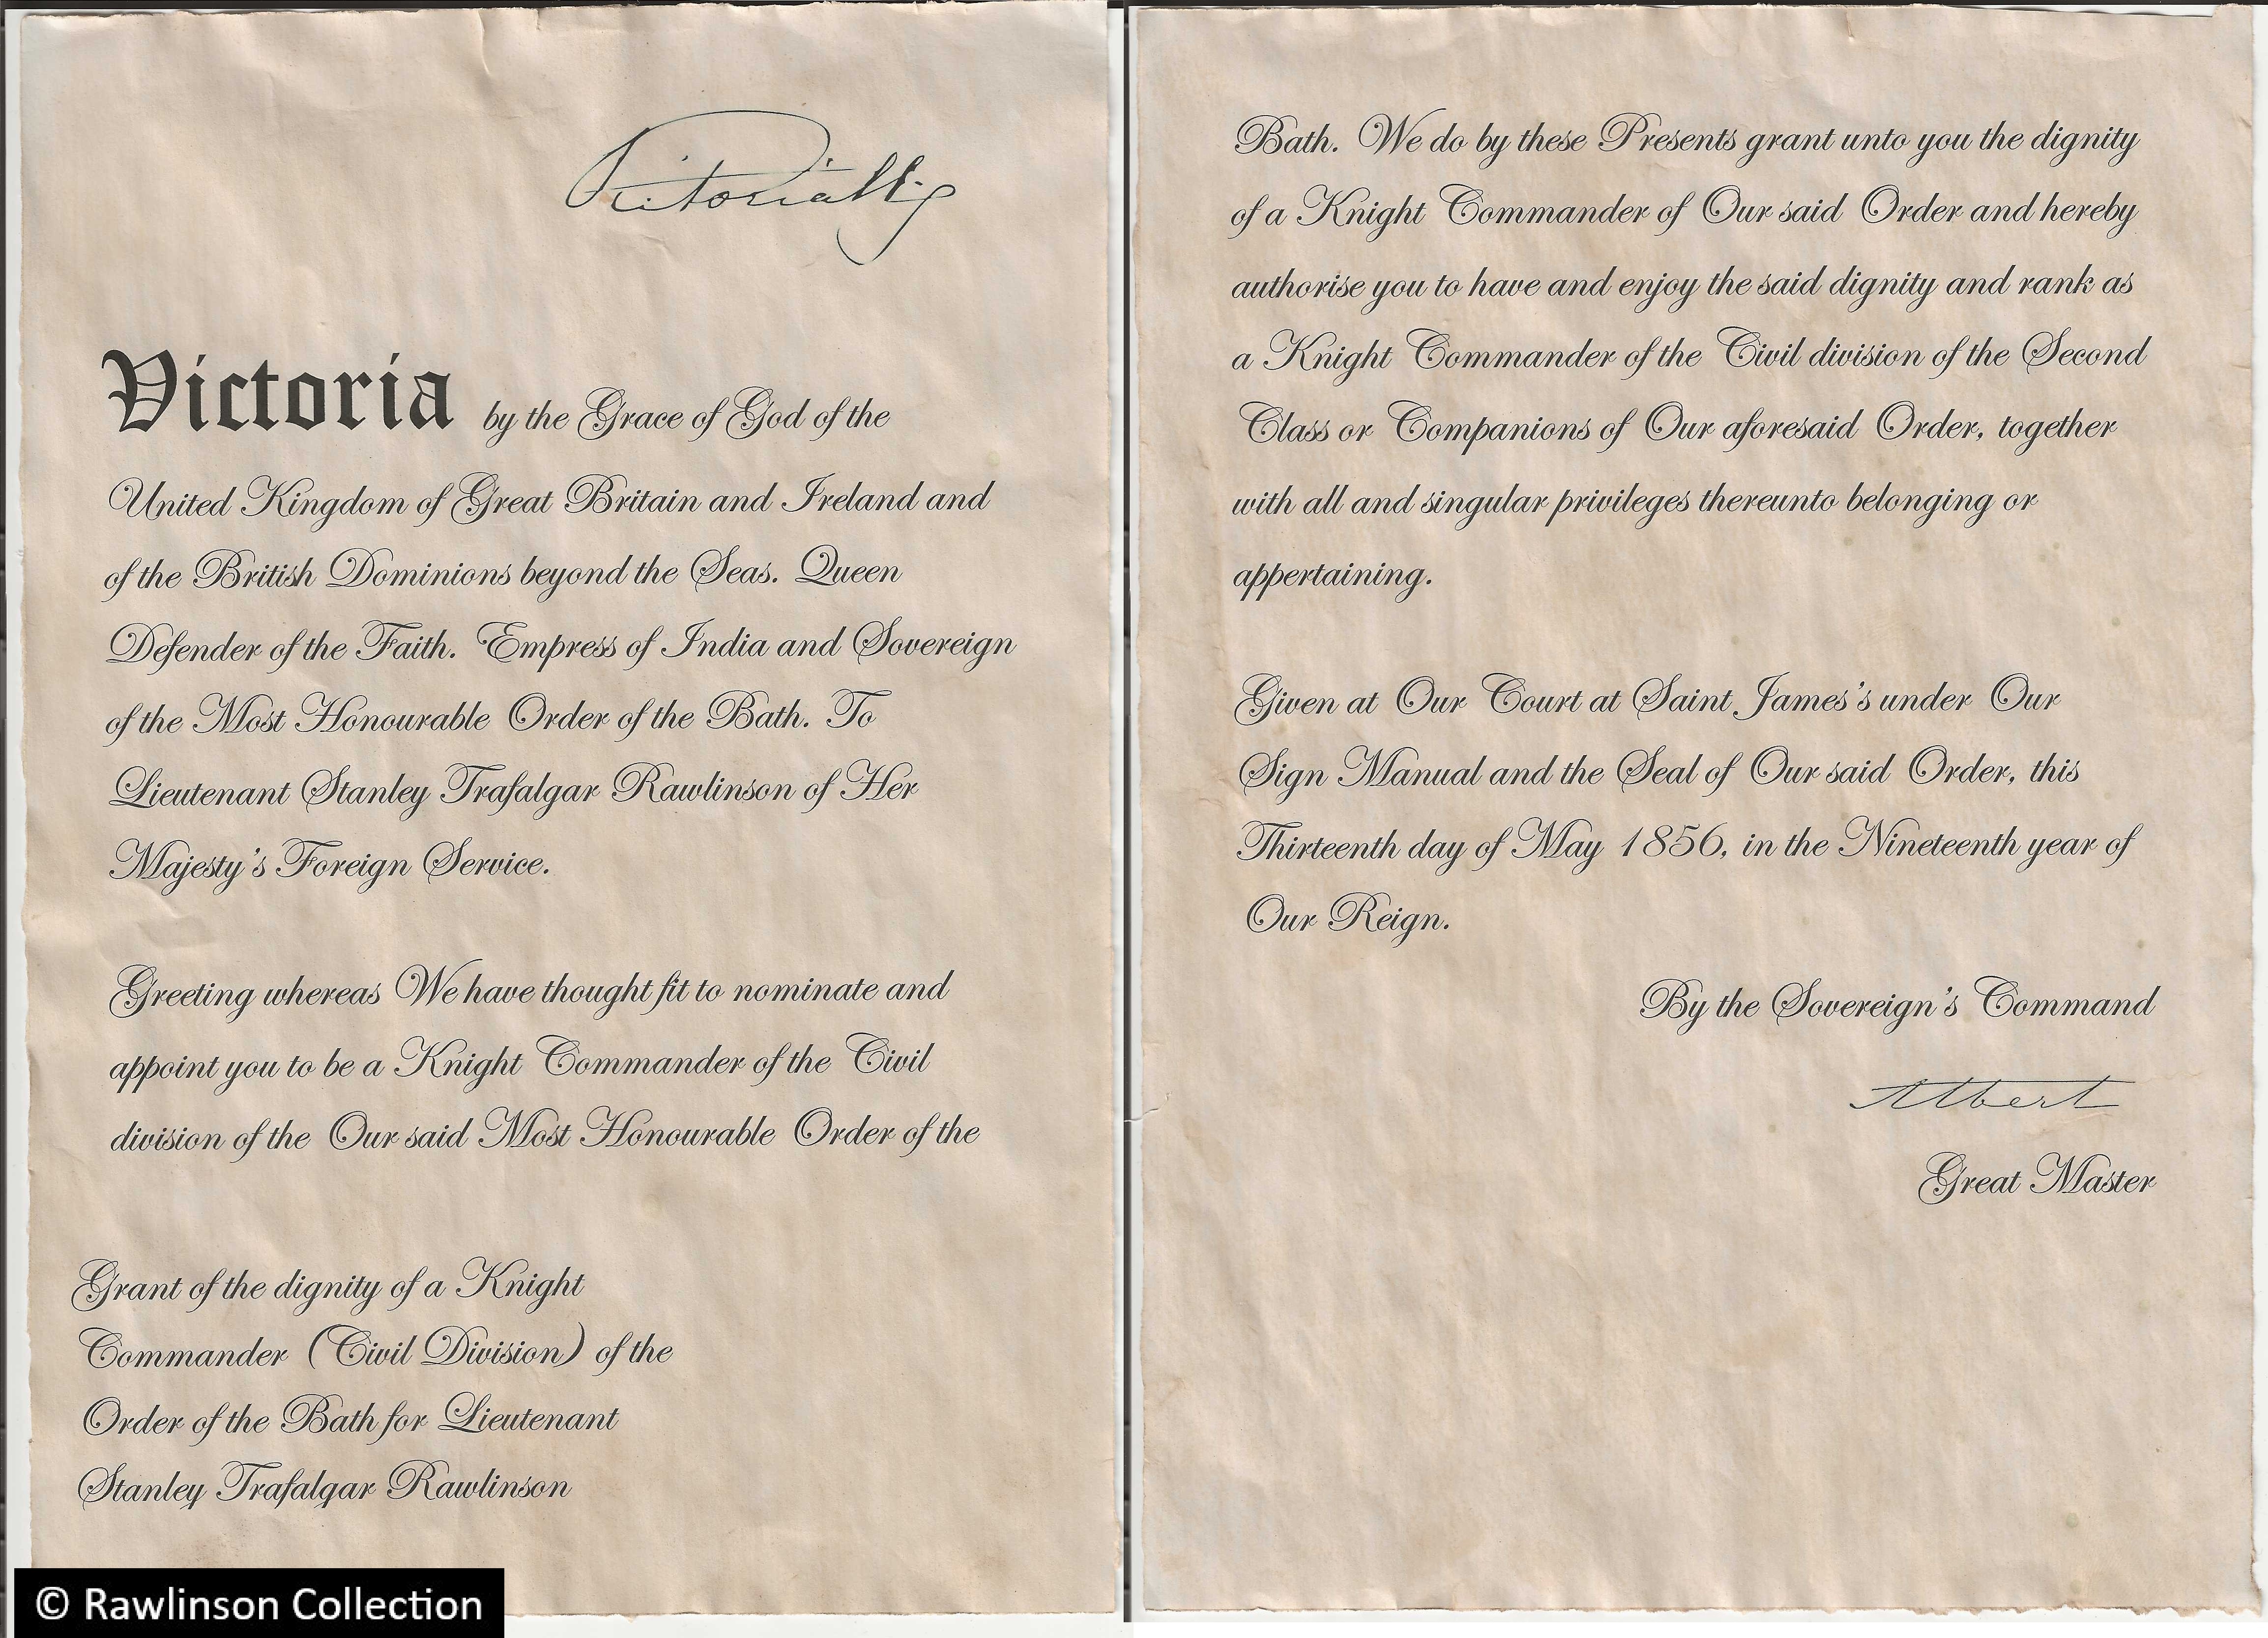 Victoria R.g
Victoria by the Grace of God of the
United Kingdom of Great Britain and Ireland and
of the British Dominions beyond the Seas. Queen
Defender of the Faith. Empress of India and Sovereign
of the Most Honourable Order of the Bath. To
Lieutenant Stanley Trafalgar Rawlinson of Her
Majesty's Foreign Service.
Greeting whereas We have thought fit to nominate and
appoint you to be a Knight Commander of the Civil
division of the Our said Most Honourable Order of the
Grant of the dignity of a Knight
Commander (Civil Division) of the
Order of the Bath for Lieutenant
Stanley Trafalgar Rawlinson
© Rawlinson Collection
Bath. We do by these Presents grant unto you the dignity
of a Knight Commander of Our said Order and hereby
authorise you to have and enjoy the said dignity and rank as
a Knight Commander of the Civil division of the Second
Class or Companions of Our aforesaid Order, together
with all and singular privileges thereunto belonging or
appertaining.
Given at Our Court at Saint James's under Our
Sign Manual and the Seal of Our said Order, this
Thirteenth day of May 1856, in the Nineteenth year of
Our Reign.
By the Sovereign's Command
Albert
Great Master